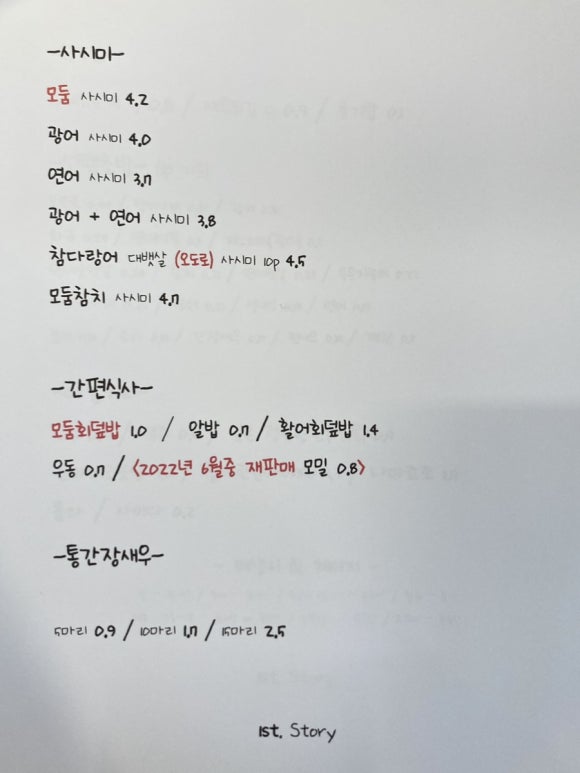 -사시미-
모둠 사시미 4.2
광어 사시미 4.0
연어 사시미 3.7
광어 + 연어 사시미 3.8
참다랑어 대뱃살 (오도로) 사시미 10p 4.5
모둠참치 사시미 4.7
-간편식사-
모둠회덮밥 1.0 / 알밥 0.7 / 활어회덮밥 1.4
우동 0.7 / <2022년 6월중 재판매 모밀 0.8>
-통간장새우-
5마리 0.9 / 10마리 1.7 / 15마리 2.5
1st. Story